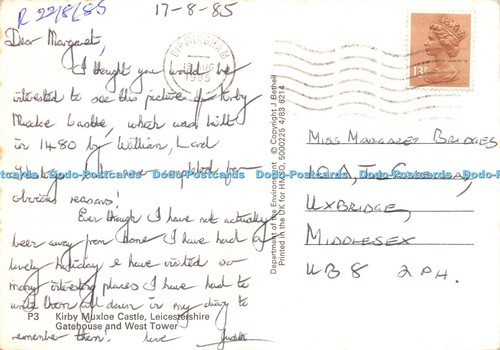 R 22/8/85
17-8-85
Dear Margaret,
I thought you would be
interested to see this picture of Kirby
Muxloe Castle, which was built
in 1480 by William, Lord
Hastings never completed for
obvious reasons!
Even though I have not actually
been away from home I have had a
lovely holiday & have visited so
many interesting places I have had to
write them all down in my diary to
remember them! love Judith
P3 Kirby Muxloe Castle, Leicestershire
Gatehouse and West Tower
BIRMINGHAM
AUG
1985
Department of the Environment © Copyright J Bethell
Printed in the UK for HMSO. 5000225 4/83 6214
13P
Miss Margaret Bridges
Uxbridge,
Middlesex
UB8 2PH.
Dodo-Postcards Dodo-Postcards Dodo-Postcards Dodo-Postcards Dodo-Postcards Dodo-Postcards